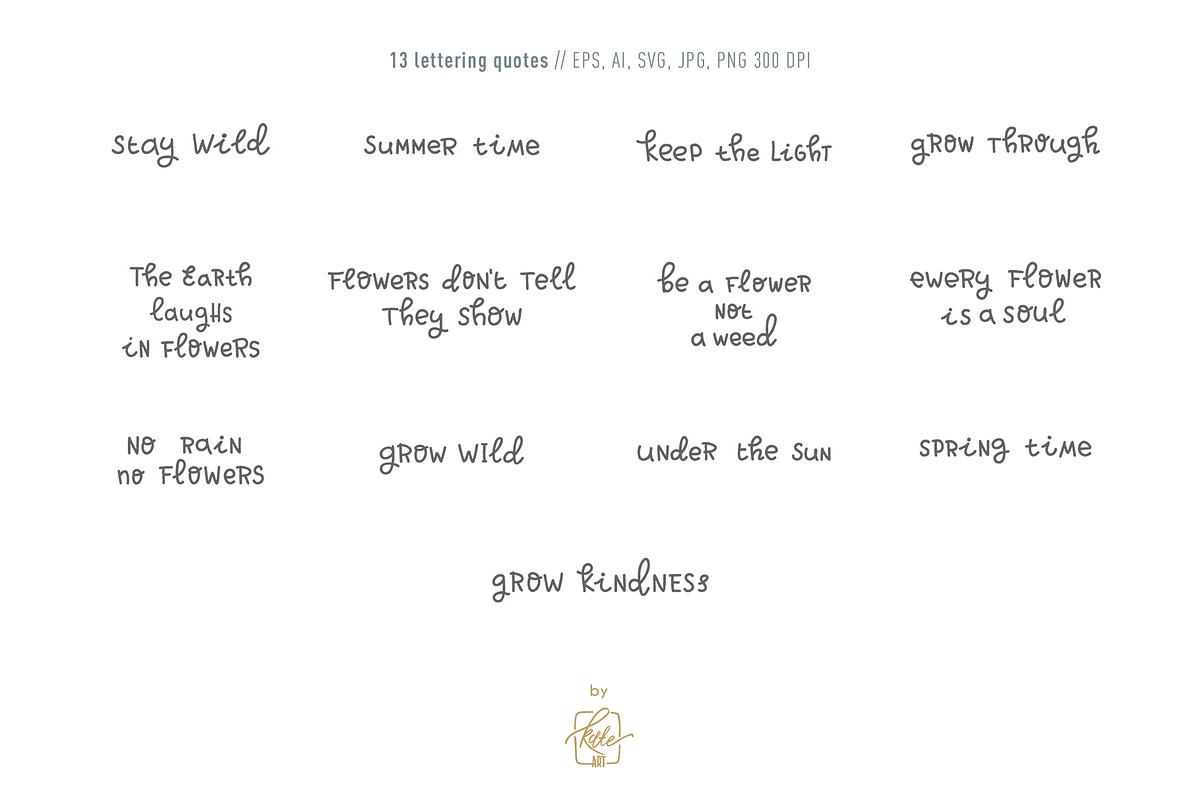 13 lettering quotes // EPS, AI, SVG, JPG, PNG 300 DPI
Stay Wild
SUMMeR tiMe
keep the LiGhT
gROW ThROugh
The EaRth
laugHs
iN FlOWeRS
FlOWeRS dON't Tell
They show
be a FlOWeR
NOt
a weed
eweRy FlOWeR
is a soul
NO RaiN
no FlOWeRS
gROW WIld
UNdeR the SuN
SPRiNg tiMe
gROW kiNdNESS
by
kate
ART